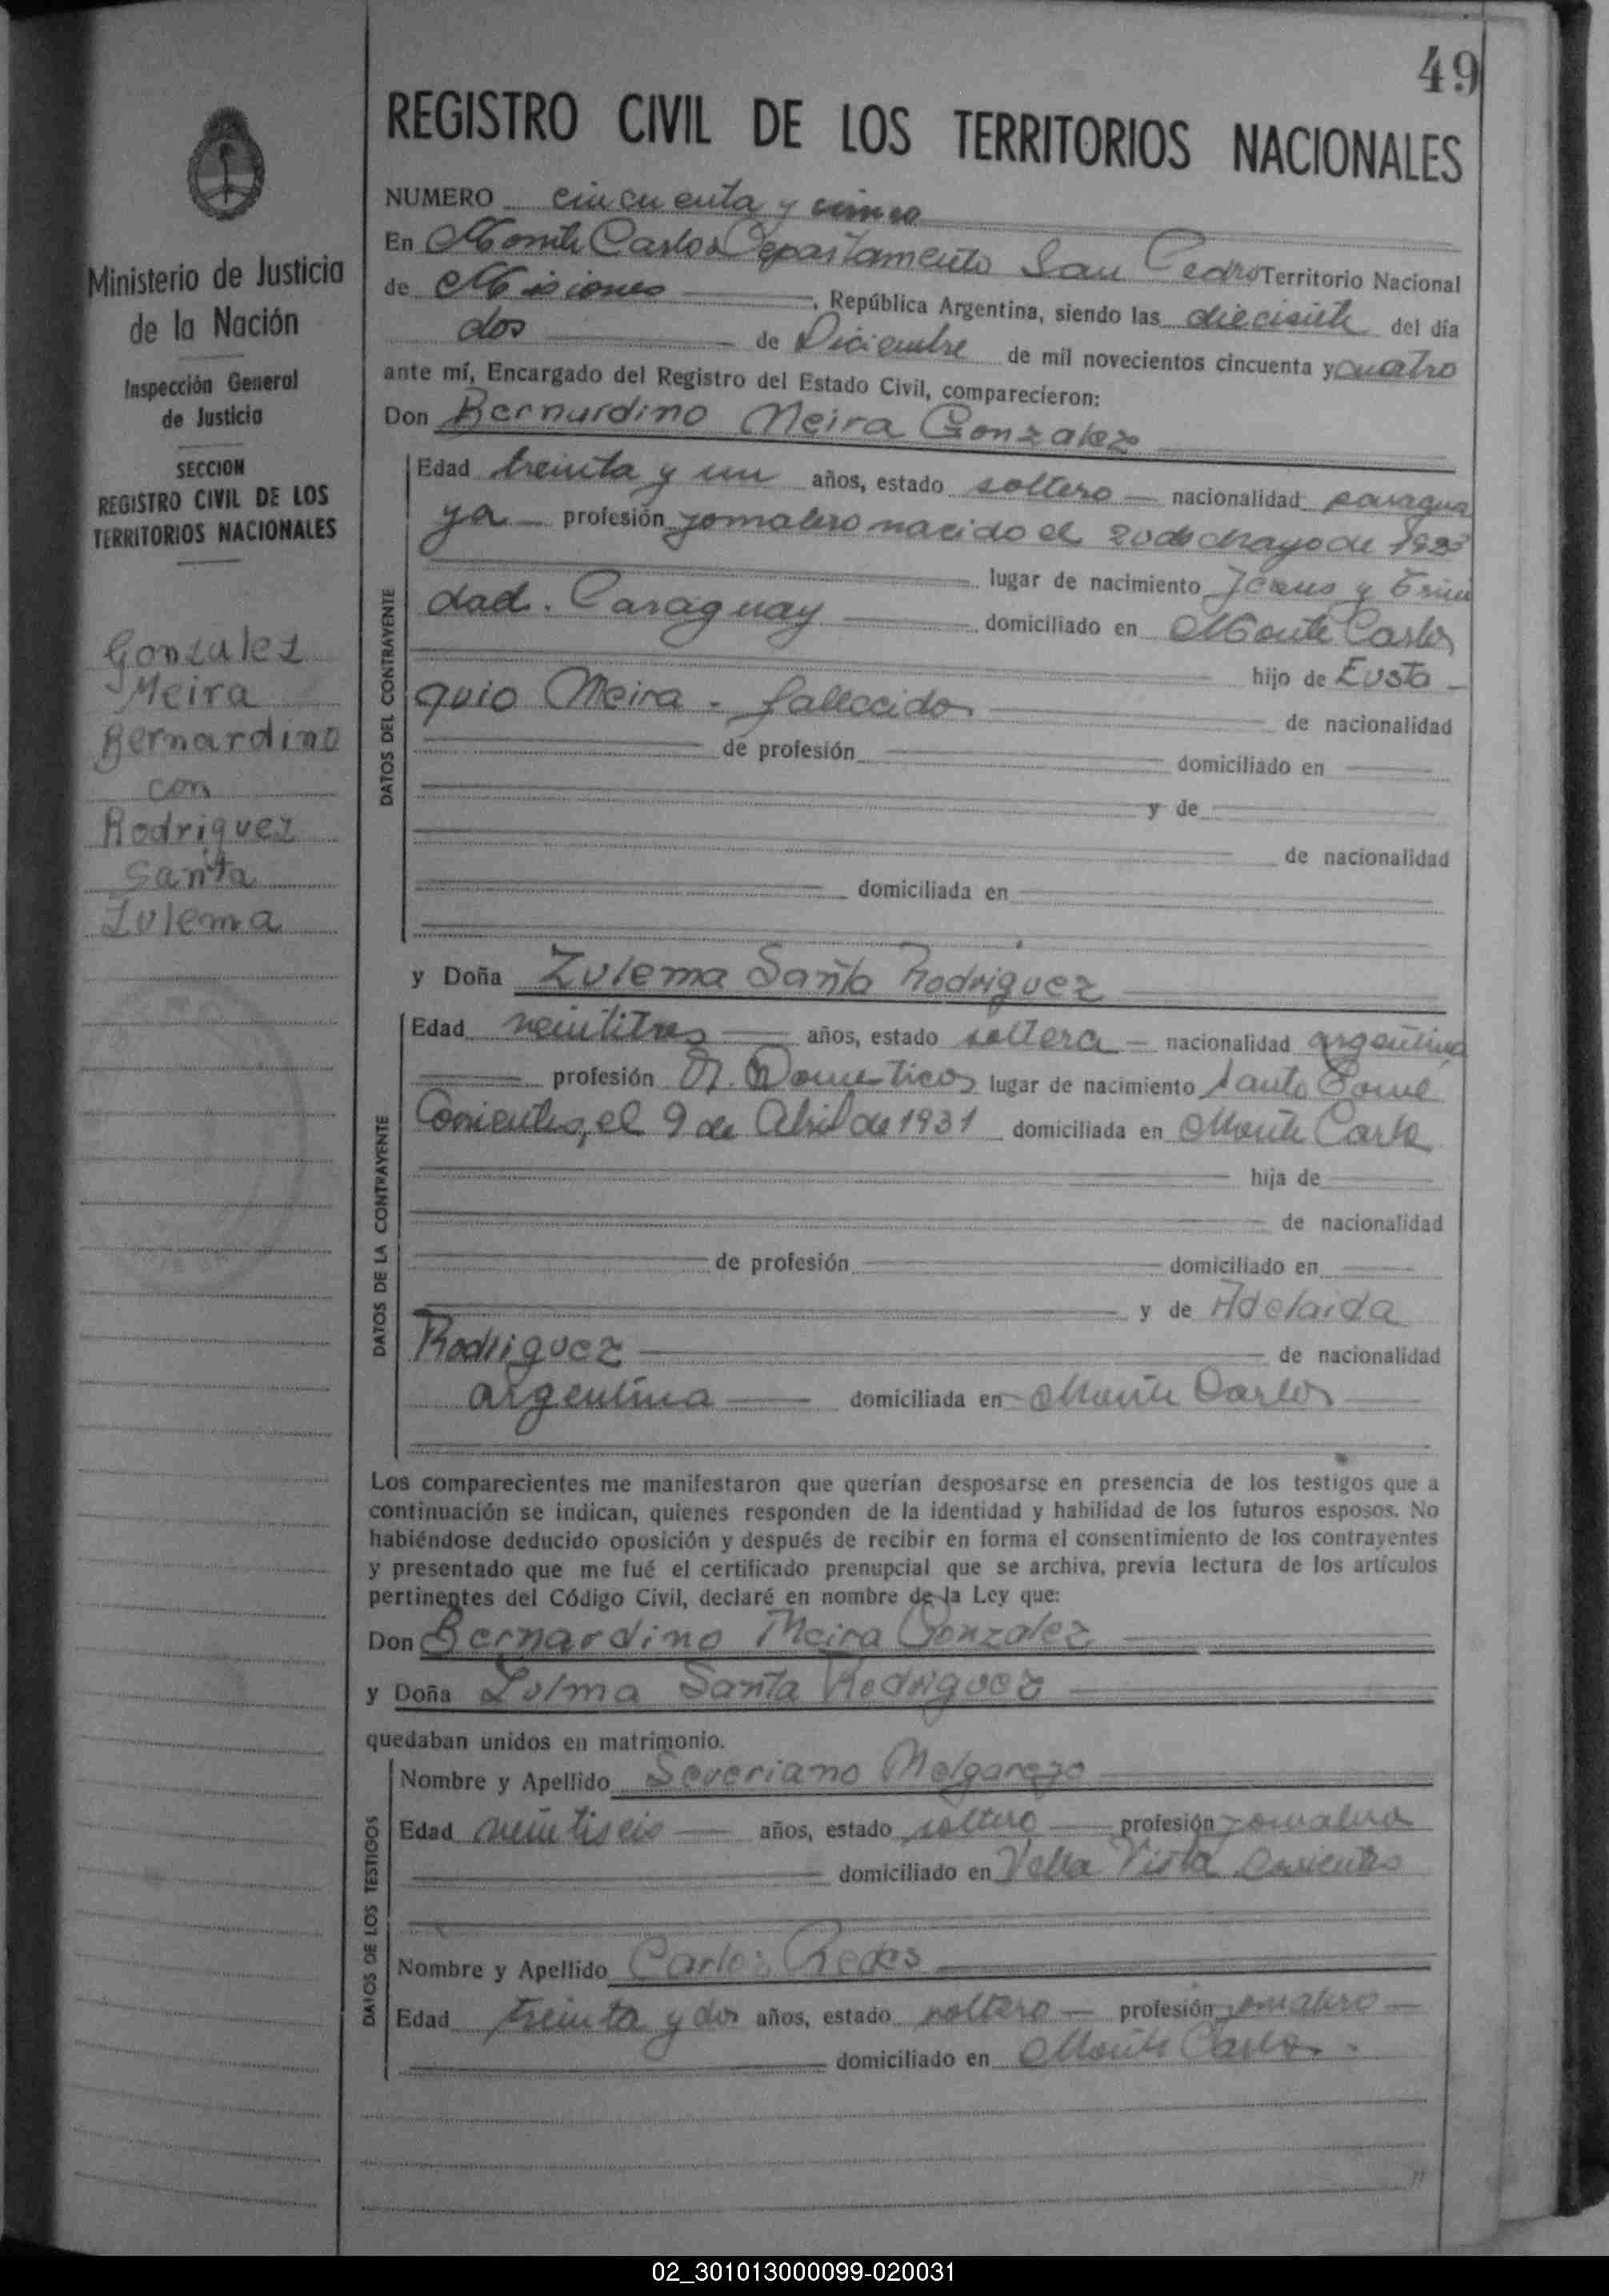 49
REGISTRO CIVIL DE LOS TERRITORIOS NACIONALES
Ministerio de Justicia
de la Nación
Inspección General
de Justicia
SECCION
REGISTRO CIVIL DE LOS
TERRITORIOS NACIONALES
Gonzalez
Meira
Bernardino
con
Rodriguez
Santa
Zulema
NUMERO cincuenta y cinco
En Monte Carlo Departamento San Pedro Territorio Nacional
de Misiones, República Argentina, siendo las diecisiete del día
dos de Diciembre de mil novecientos cincuenta y cuatro
ante mí, Encargado del Registro del Estado Civil, comparecieron:
Don Bernardino Meira Gonzalez
DATOS DEL CONTRAYENTE
Edad treinta y un años, estado soltero nacionalidad paragua
ya profesión jornalero nacido el 20 de Mayo de 1923
lugar de nacimiento Jesus y Trini
dad. Paraguay domiciliado en Monte Carlo
hijo de Eusta-
quio Meira - fallecido de nacionalidad
de profesión domiciliado en
y de
de nacionalidad
domiciliada en
y Doña Zulema Santa Rodriguez
DATOS DE LA CONTRAYENTE
Edad veintitres años, estado soltera nacionalidad argentina
profesión Q. Domesticos lugar de nacimiento Santo Tomé
Corrientes, el 9 de Abril de 1931 domiciliada en Monte Carlo
hija de
de nacionalidad
de profesión domiciliado en
y de Adelaida
Rodriguez de nacionalidad
argentina domiciliada en Monte Carlo
Los comparecientes me manifestaron que querían desposarse en presencia de los testigos que a
continuación se indican, quienes responden de la identidad y habilidad de los futuros esposos. No
habiéndose deducido oposición y después de recibir en forma el consentimiento de los contrayentes
y presentado que me fué el certificado prenupcial que se archiva, previa lectura de los artículos
pertinentes del Código Civil, declaré en nombre de la Ley que:
Don Bernardino Meira Gonzalez
y Doña Zulma Santa Rodriguez
quedaban unidos en matrimonio.
DATOS DE LOS TESTIGOS
Nombre y Apellido Severiano Melgarejo
Edad veintiseis años, estado soltero profesión jornalero
domiciliado en Vella Vista Corrientes
Nombre y Apellido Carlos
Edad treinta y dos años, estado soltero profesión jornalero
domiciliado en Monte Carlo.
02_301013000099-020031